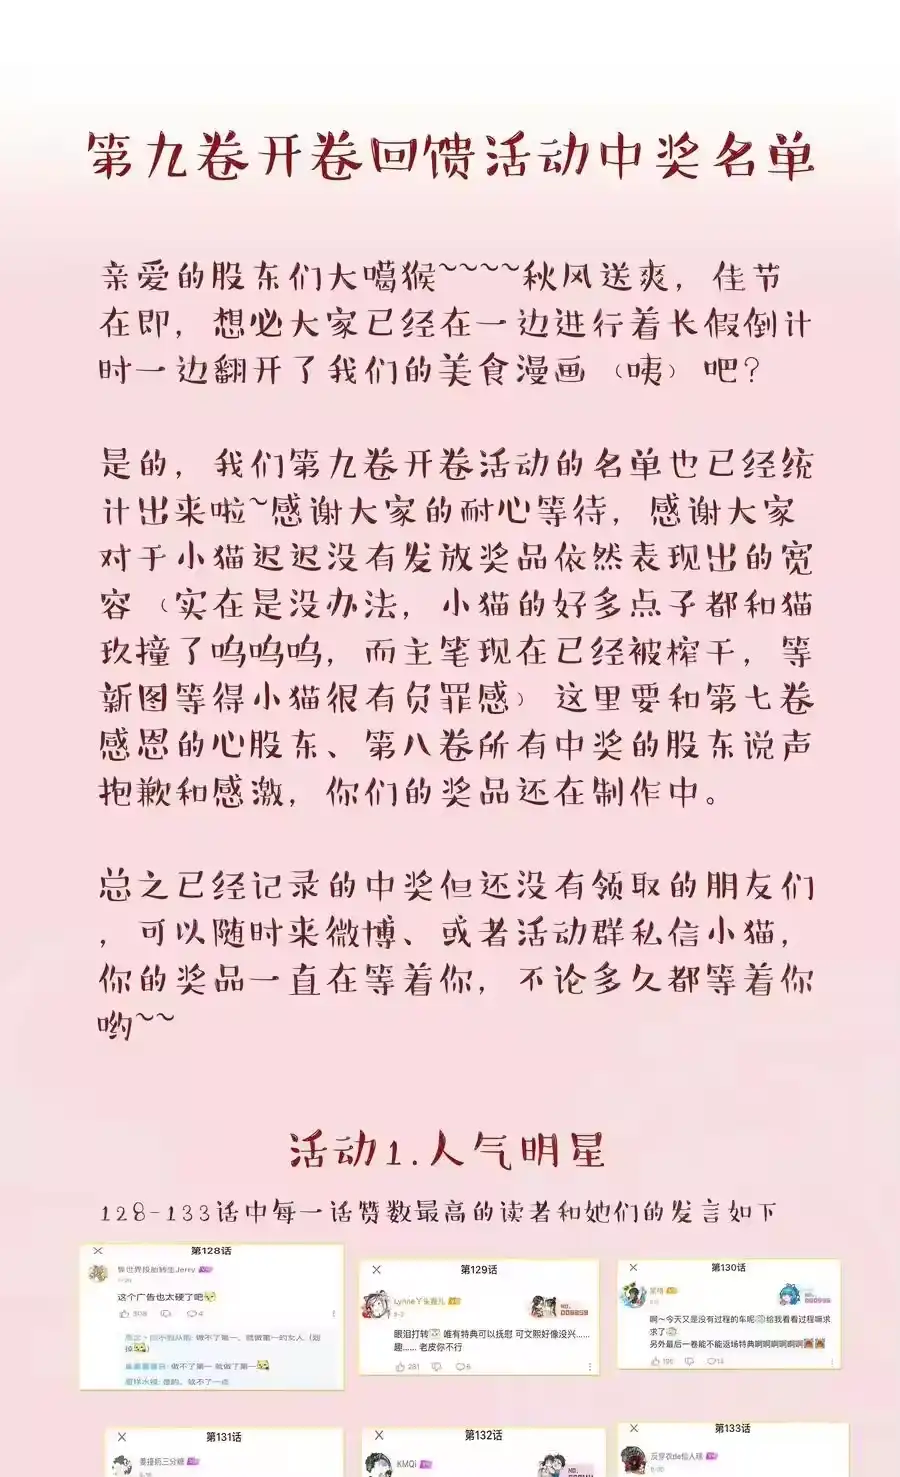 第九卷开卷回馈活动中奖名单
亲爱的股东们大噶猴~~~~秋风送爽，佳节
在即，想必大家已经在一边进行着长假倒计
时一边翻开了我们的美食漫画（咦）吧？
是的，我们第九卷开卷活动的名单也已经统
计出来啦~感谢大家的耐心等待，感谢大家
对于小猫迟迟没有发放奖品依然表现出的宽
容（实在是没办法，小猫的好多点子都和猫
玖撞了呜呜呜，而主笔现在已经被榨干，等
新图等得小猫很有负罪感）这里要和第七卷
感恩的心股东、第八卷所有中奖的股东说声
抱歉和感激，你们的奖品还在制作中。
总之已经记录的中奖但还没有领取的朋友们
，可以随时来微博、或者活动群私信小猫，
你的奖品一直在等着你，不论多久都等着你
哟~~
活动1.人气明星
128-133话中每一话赞数最高的读者和她们的发言如下
第128话
这个广告也太硬了吧
308
4
做不了第一，就做第一的女人
做不了第一 就做了第一
第129话
眼泪打转 唯有特典可以抚慰 可文熙好像没兴……
趣…… 老皮你不行
281
6
第130话
啊～今天又是没有过程的车呢 给我看看过程嘛求
求了
另外最后一卷能不能返场特典啊啊啊啊啊啊
196
14
第131话
第132话
KMQi
第133话